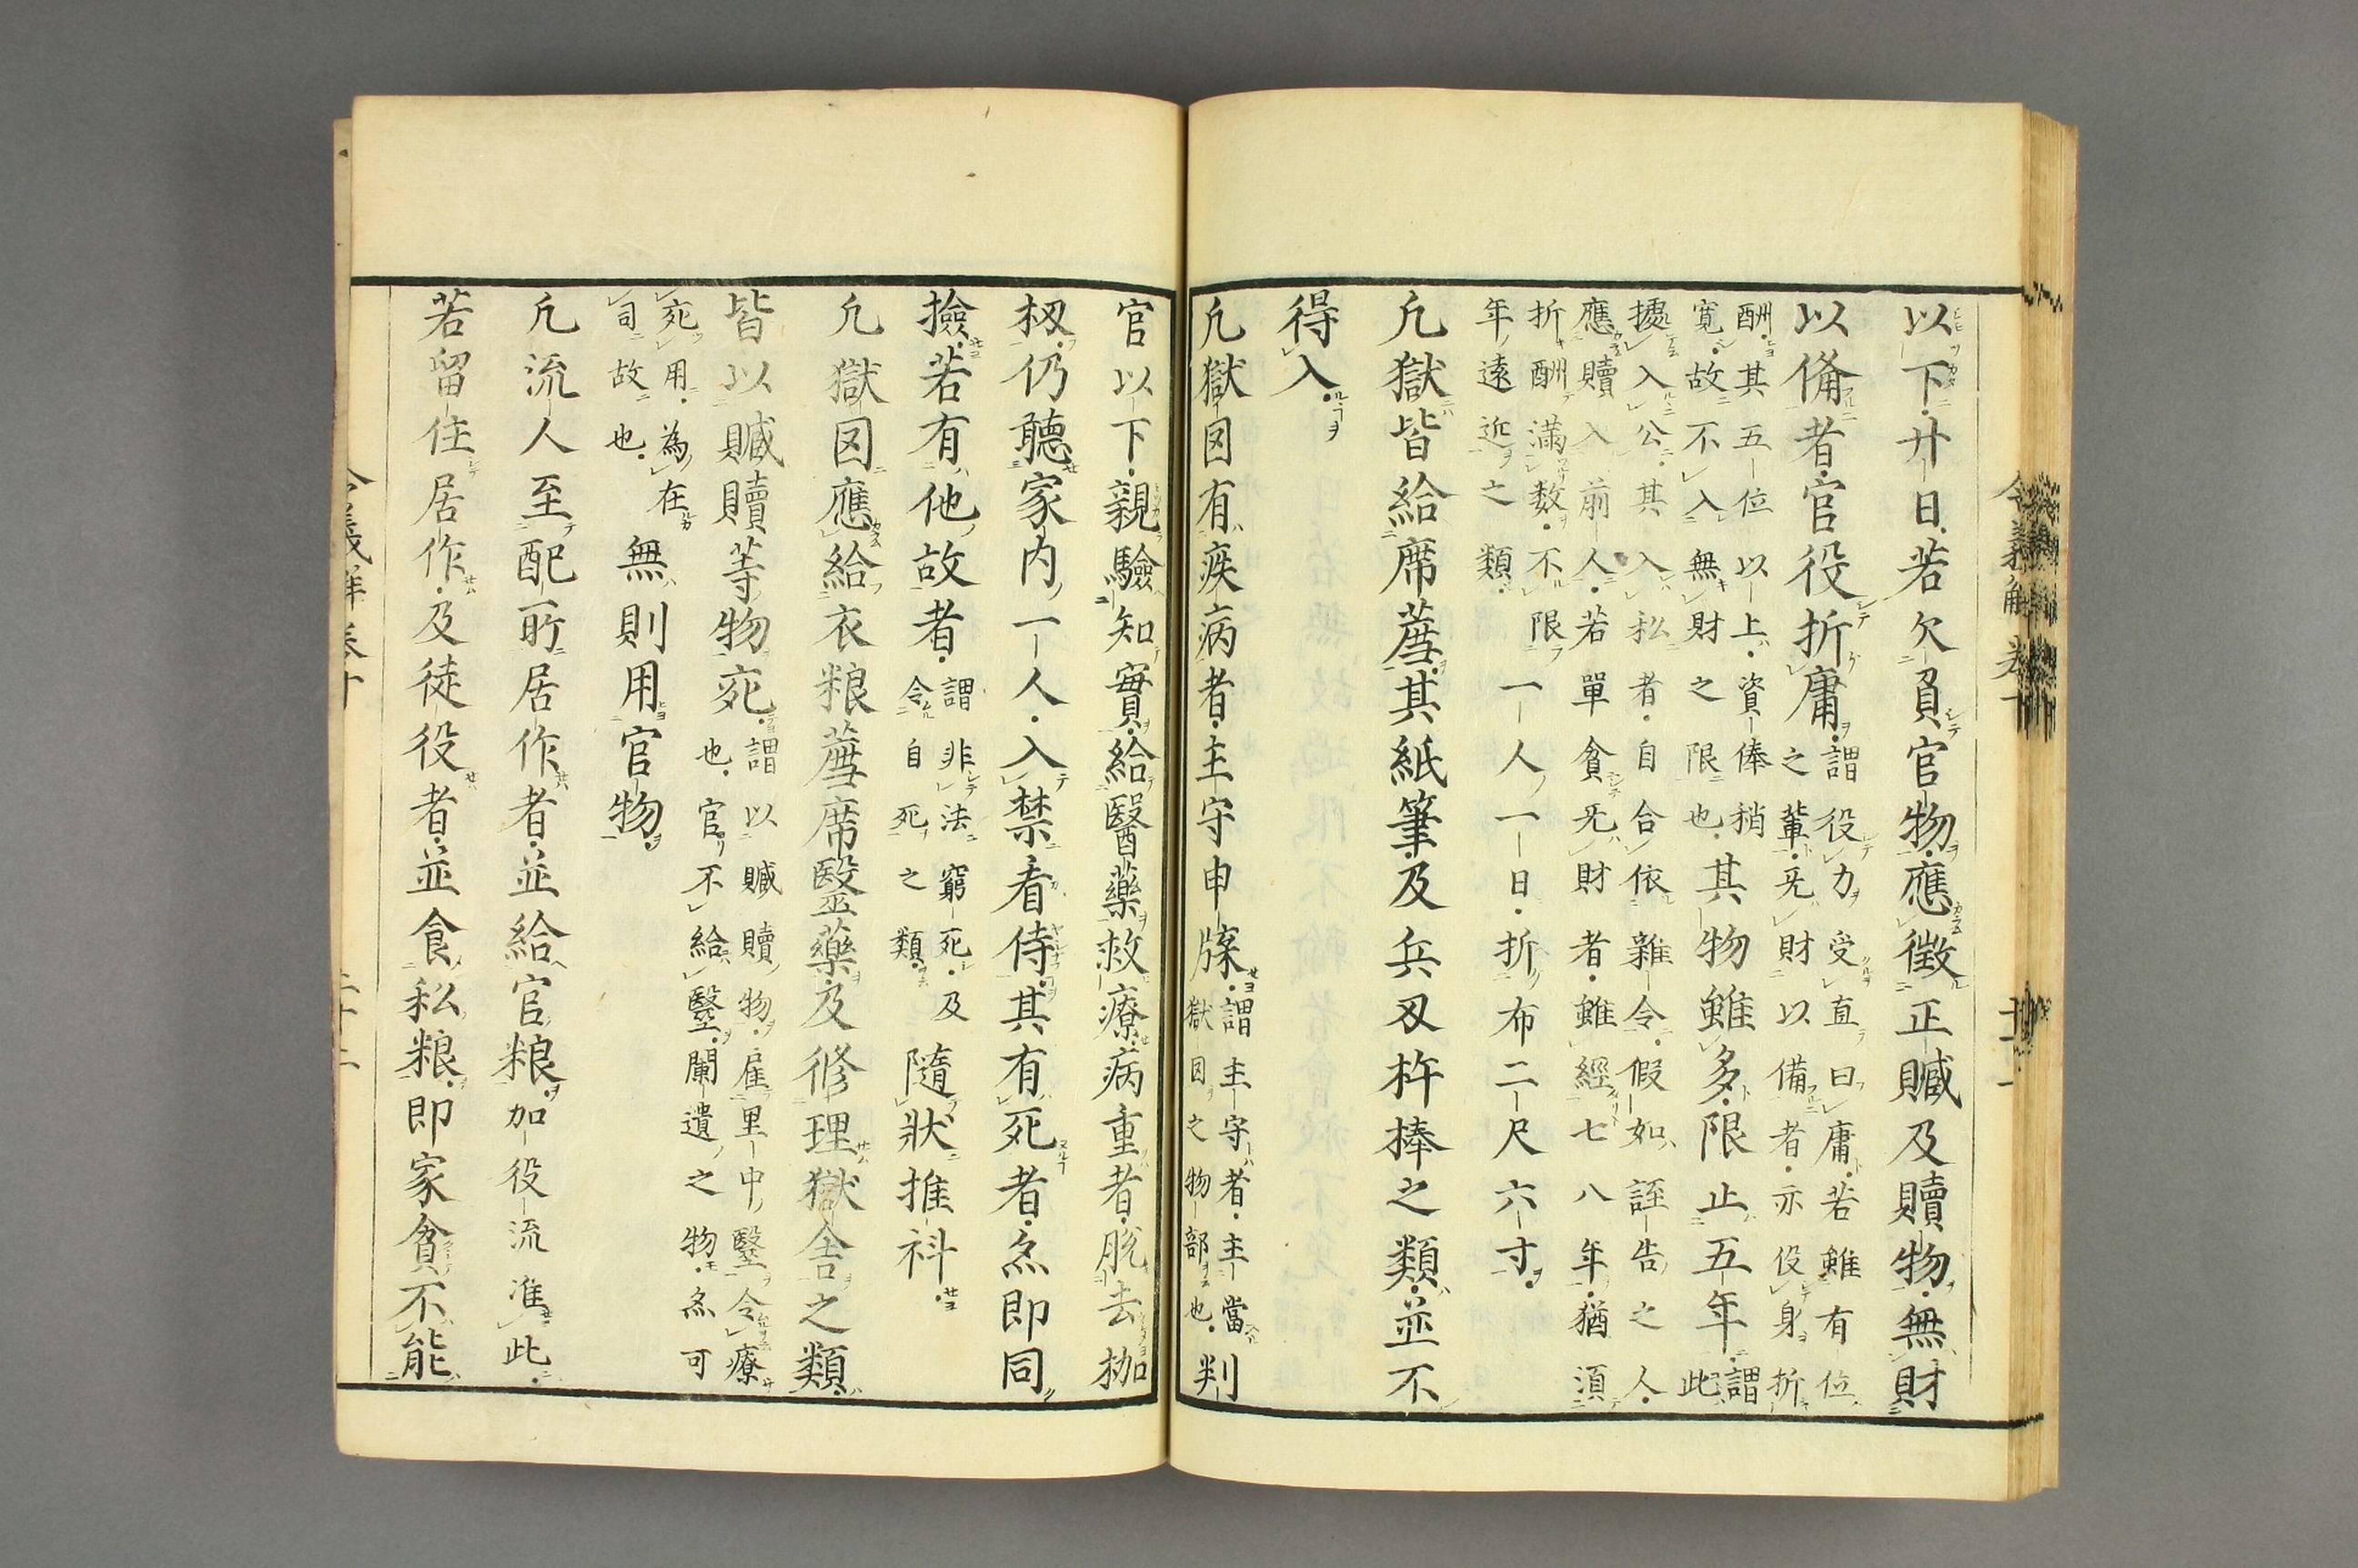 以下廿日若欠負官物應徵正贓及贖物無財
以備者官役折庸謂役力受直曰庸若雖有位
之輩旡財以備者亦役身折
酬其五位以上資俸稍
寬故不入無財之限也其物雖多限止五年謂
此
據入公其入私者自合依雜令假如誣告之人
應贖入前人若單貧旡財者雖經七八年猶須
折酬滿数不限一人一日折布二尺六寸
年遠近之類
凢獄皆給席薦其紙筆及兵刃杵棒之類並不
得入
凢獄囚有疾病者主守申牒謂主守者主當
獄囚之物部也判
官以下親驗知實給醫藥救療病重者脱去枷
杻仍聽家内一人入禁看侍其有死者亦即同
撿若有他故者謂非法窮死及
令自死之類隨狀推科
凢獄囚應給衣粮薦席醫藥及修理獄舎之類
皆以贓贖等物宛謂以贓贖物雇里中醫令療
也官不給醫闌遺之物亦可
宛用為在
司故也無則用官物
凢流人至配所居作者並給官粮加役流准此
若留住居作及徒役者並食私粮即家貧不能
令義解卷十
令義解卷十